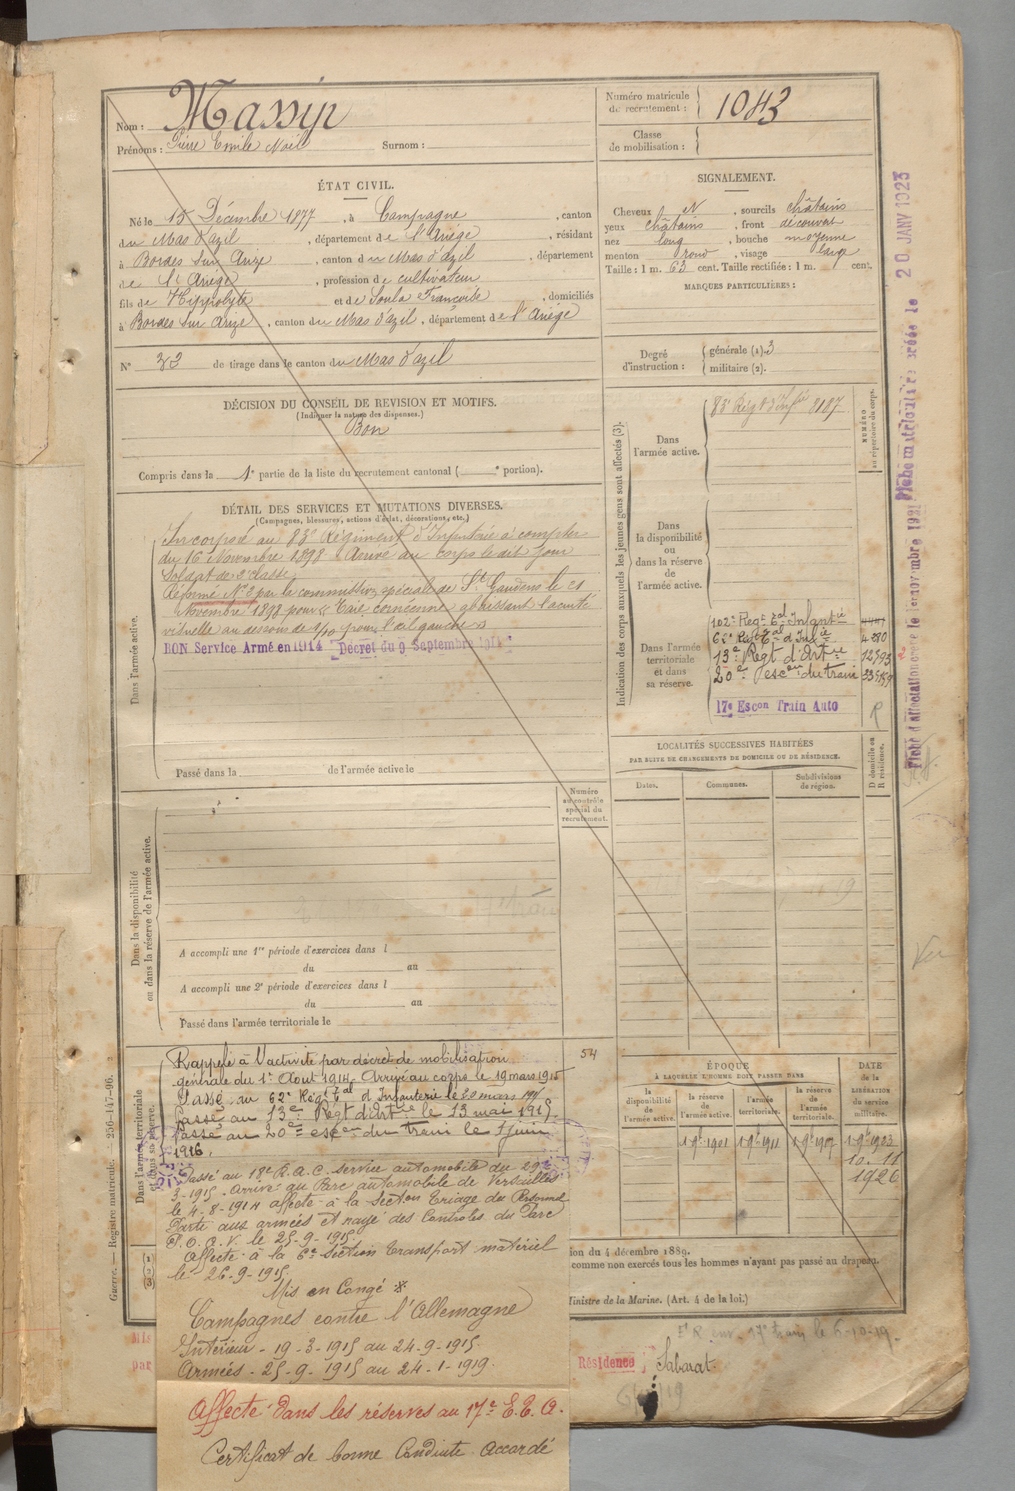 Nom : Massip
Prénoms : Pierre Emile Noël Surnom :
Numéro matricule de recrutement : 1043
Classe de mobilisation :
ÉTAT CIVIL.
Né le 15 Décembre 1877, à Campagne, canton
du Mas d'azil, département de l'Ariège, résidant
à Bordes sur Arize, canton du Mas d'azil, département
de l'Ariège, profession de cultivateur
fils de Hippolyte et de Soula Françoise, domiciliés
à Bordes sur Arize, canton du Mas d'azil, département de l'Ariège
N° 33 de tirage dans le canton du Mas d'azil
SIGNALEMENT.
Cheveux N, sourcils châtains
yeux châtains, front découvert
nez long, bouche moyenne
menton rond, visage large
Taille : 1 m. 63 cent. Taille rectifiée : 1 m. cent.
MARQUES PARTICULIÈRES :
Degré d'instruction : générale (1). 3
militaire (2).
DÉCISION DU CONSEIL DE REVISION ET MOTIFS.
(Indiquer la nature des dispenses.)
Bon
Compris dans la 1e partie de la liste du recrutement cantonal ( e portion).
DÉTAIL DES SERVICES ET MUTATIONS DIVERSES.
(Campagnes, blessures, actions d'éclat, décorations, etc.)
Dans l'armée active.
Incorporé au 83e Régiment d'Infanterie à compter
du 16 Novembre 1898. Arrivé au corps le dit jour
Soldat de 2e classe
Réformé N°2 par la commission spéciale de St Gaudens le 21
Novembre 1898 pour « Taie cornéenne abaissant l'acuité
visuelle au dessous de 1/10 pour l'œil gauche »
BON Service Armé en 1914 Décret du 9 Septembre 1914
Passé dans la de l'armée active le
Indication des corps auxquels les jeunes gens sont affectés (3).
NUMÉRO au répertoire du corps.
Dans l'armée active.
83e Régt d'Infie 8187
Dans la disponibilité ou dans la réserve de l'armée active.
Dans l'armée territoriale et dans sa réserve.
102e Regt Eal Infantie
62e Regt Eal d'Infie 4280
13e Regt d'Artie 12593
20e escon du train
17e Escon Train Auto R
Fiche d'affectation
Fiche matriculaire créée le 20 JANV 1923
LOCALITÉS SUCCESSIVES HABITÉES
PAR SUITE DE CHANGEMENTS DE DOMICILE OU DE RÉSIDENCE.
Dates. Communes. Subdivisions de région.
D domicile ou R résidence.
Numéro au contrôle spécial du recrutement.
Dans la disponibilité ou dans la réserve de l'armée active.
A accompli une 1re période d'exercices dans l
du au
A accompli une 2e période d'exercices dans l
du au
Passé dans l'armée territoriale le
Vu
Dans l'armée territoriale et dans sa réserve.
54
Rappelé à l'activité par décret de mobilisation
générale du 1er Aout 1914. Arrivé au corps le 19 mars 1915
Passé au 62e Régt Eal d'Infanterie le 20 mars 1915
Passé au 13e Regt d'Artie le 13 mai 1915
Passé au 20e escon du train le 1 juin
1916,
Passé au 18e R.A.C. service automobile du 29-
3-1915. Arrivé au Parc automobile de Versailles
le 4-8-1914 affecté à la section triage du Personnel
Parti aux armées et rayé des Controles du Parc
P.O.A.V. le 25-9-1915
Affecté à la 6e section transport matériel
le 26-9-1915.
Mis en Congé
Campagnes contre l'Allemagne
Intérieur - 19-3-1915 au 24-9-1915.
Armées - 25-9-1915 au 24-1-1919.
Affecté dans les réserves au 17e E.T.A.
Certificat de bonne Conduite accordé
ÉPOQUE
À LAQUELLE L'HOMME DOIT PASSER DANS
la disponibilité de l'armée active.
la réserve de l'armée active.
l'armée territoriale.
la réserve de l'armée territoriale.
DATE de la LIBÉRATION du service militaire.
1 9bre 1901 1 9bre 1911 1 9bre 1917 1 9bre 1923
10-11
1926
ion du 4 décembre 1889.
comme non exercés tous les hommes n'ayant pas passé au drapeau.
Ministre de la Marine. (Art. 4 de la loi.)
(1)
(2)
(3)
Guerre. — Registre matricule. 256-147-96.
17e train le 6-10-19
Mis
par
Résidence, Sabarat.